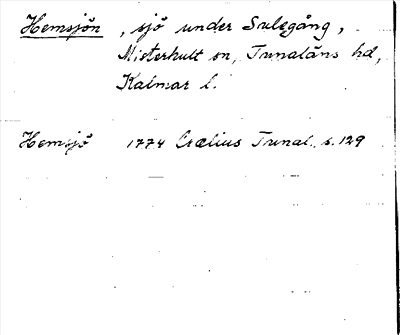 Hemsjön, sjö under Sulegång,
Misterhult sn, Tunaläns hd,
Kalmar l.
Hemsjö 1774 Crælius Tunal. s. 129